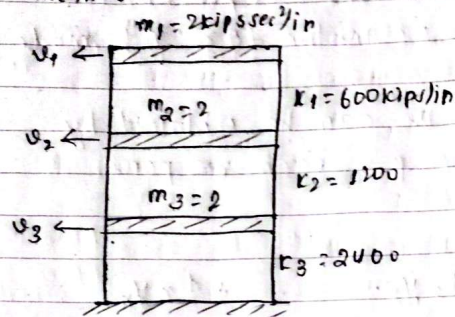 m₁=2kips sec²/in
υ₁ ←
K₁=600kips/in
m₂=2
υ₂ ←
K₂=1200
m₃=2
υ₃ ←
K₃=2400